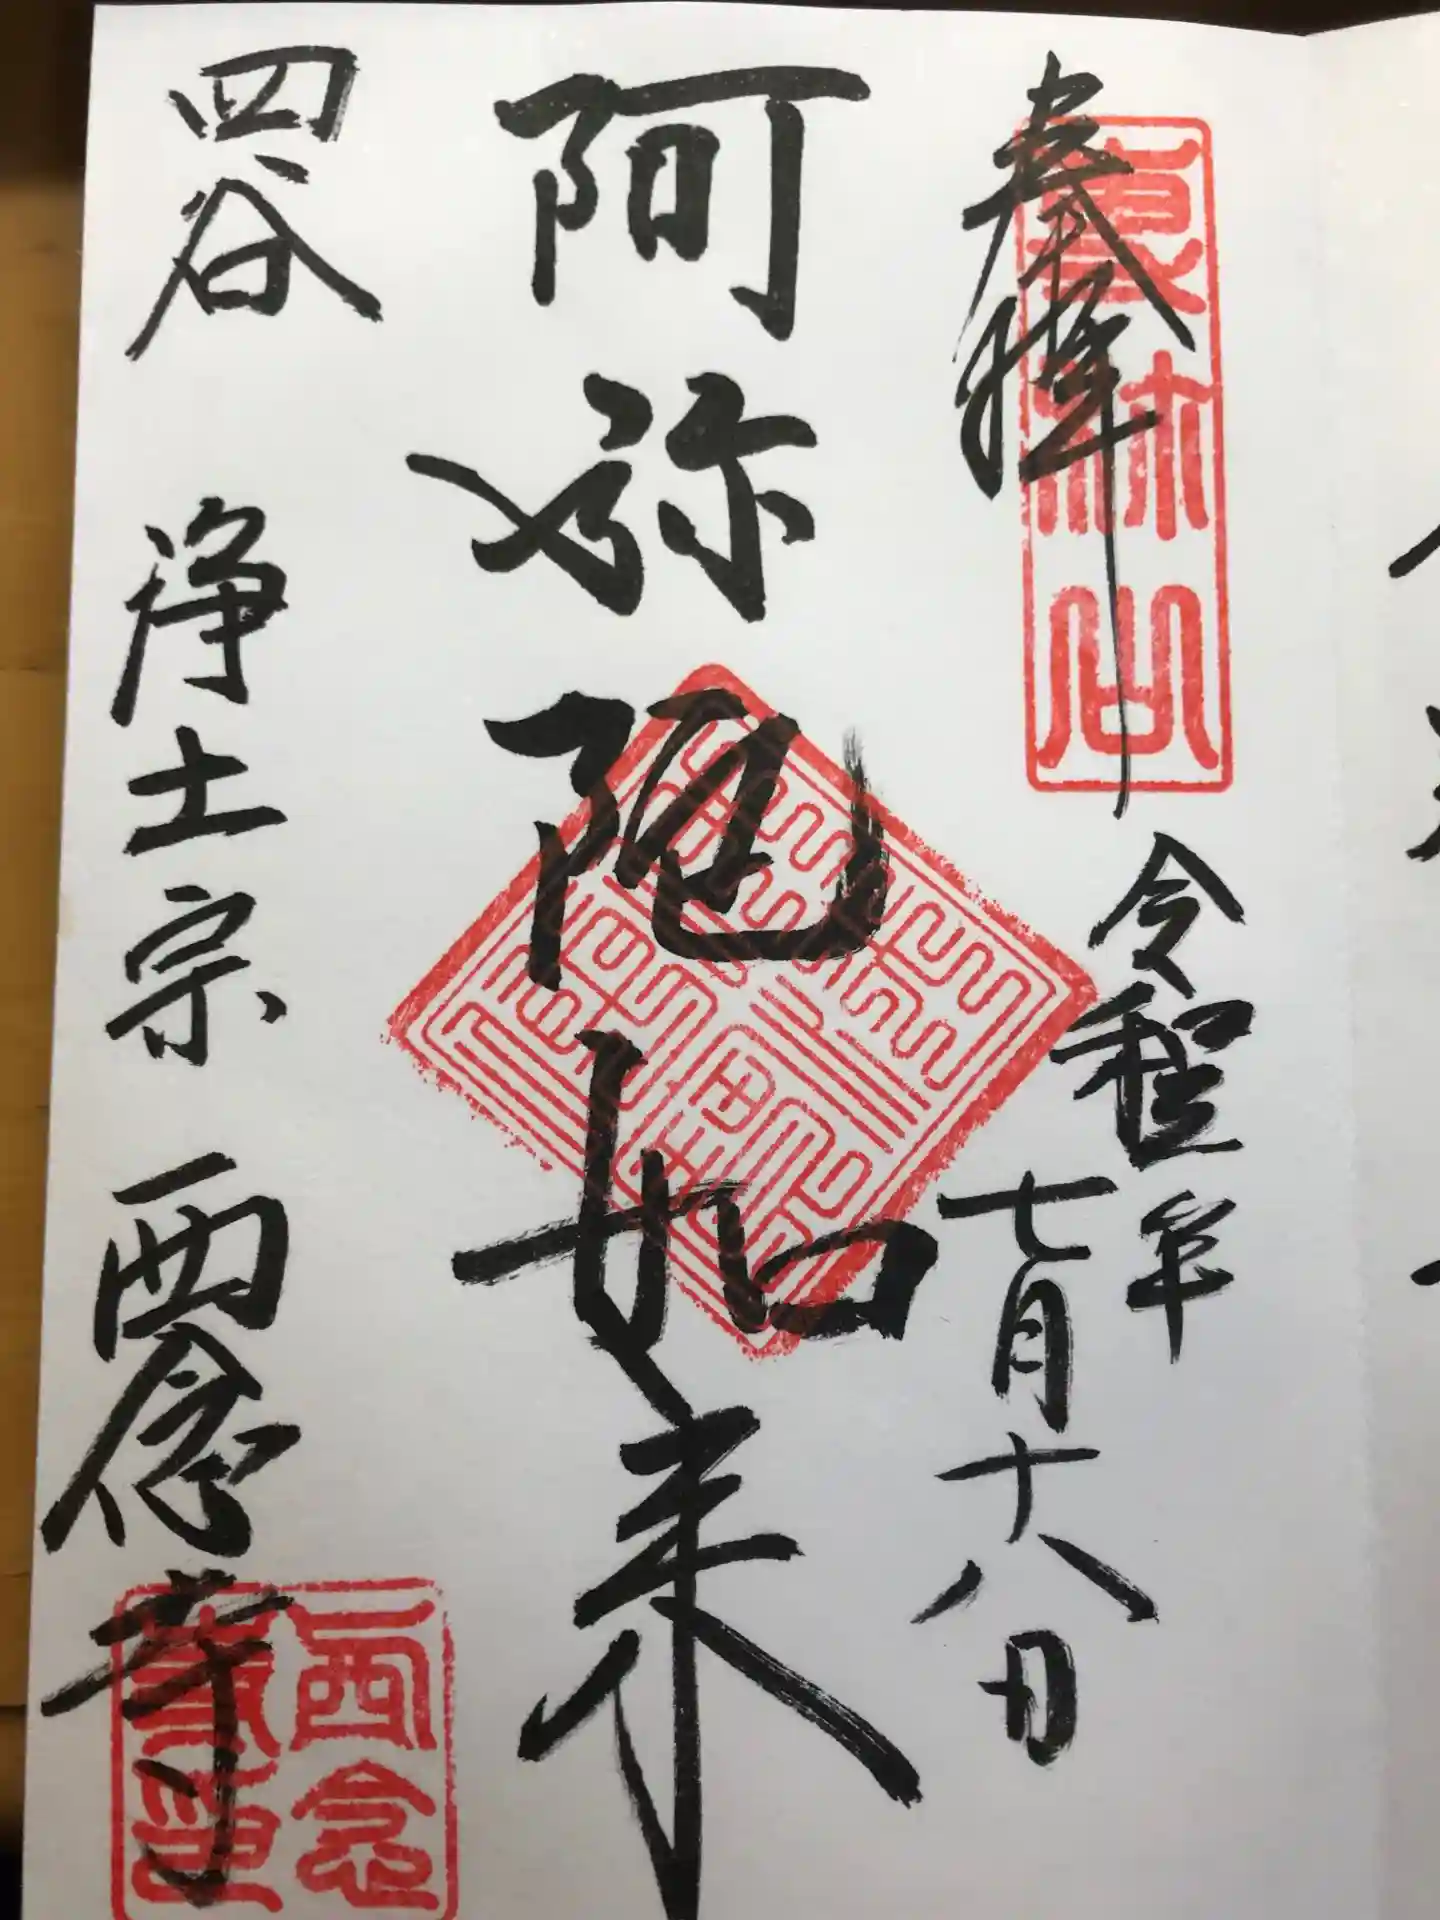 奉拝
令和 年
七月十八日
阿弥陀如来
四谷 浄土宗 西念寺
西念
寺印